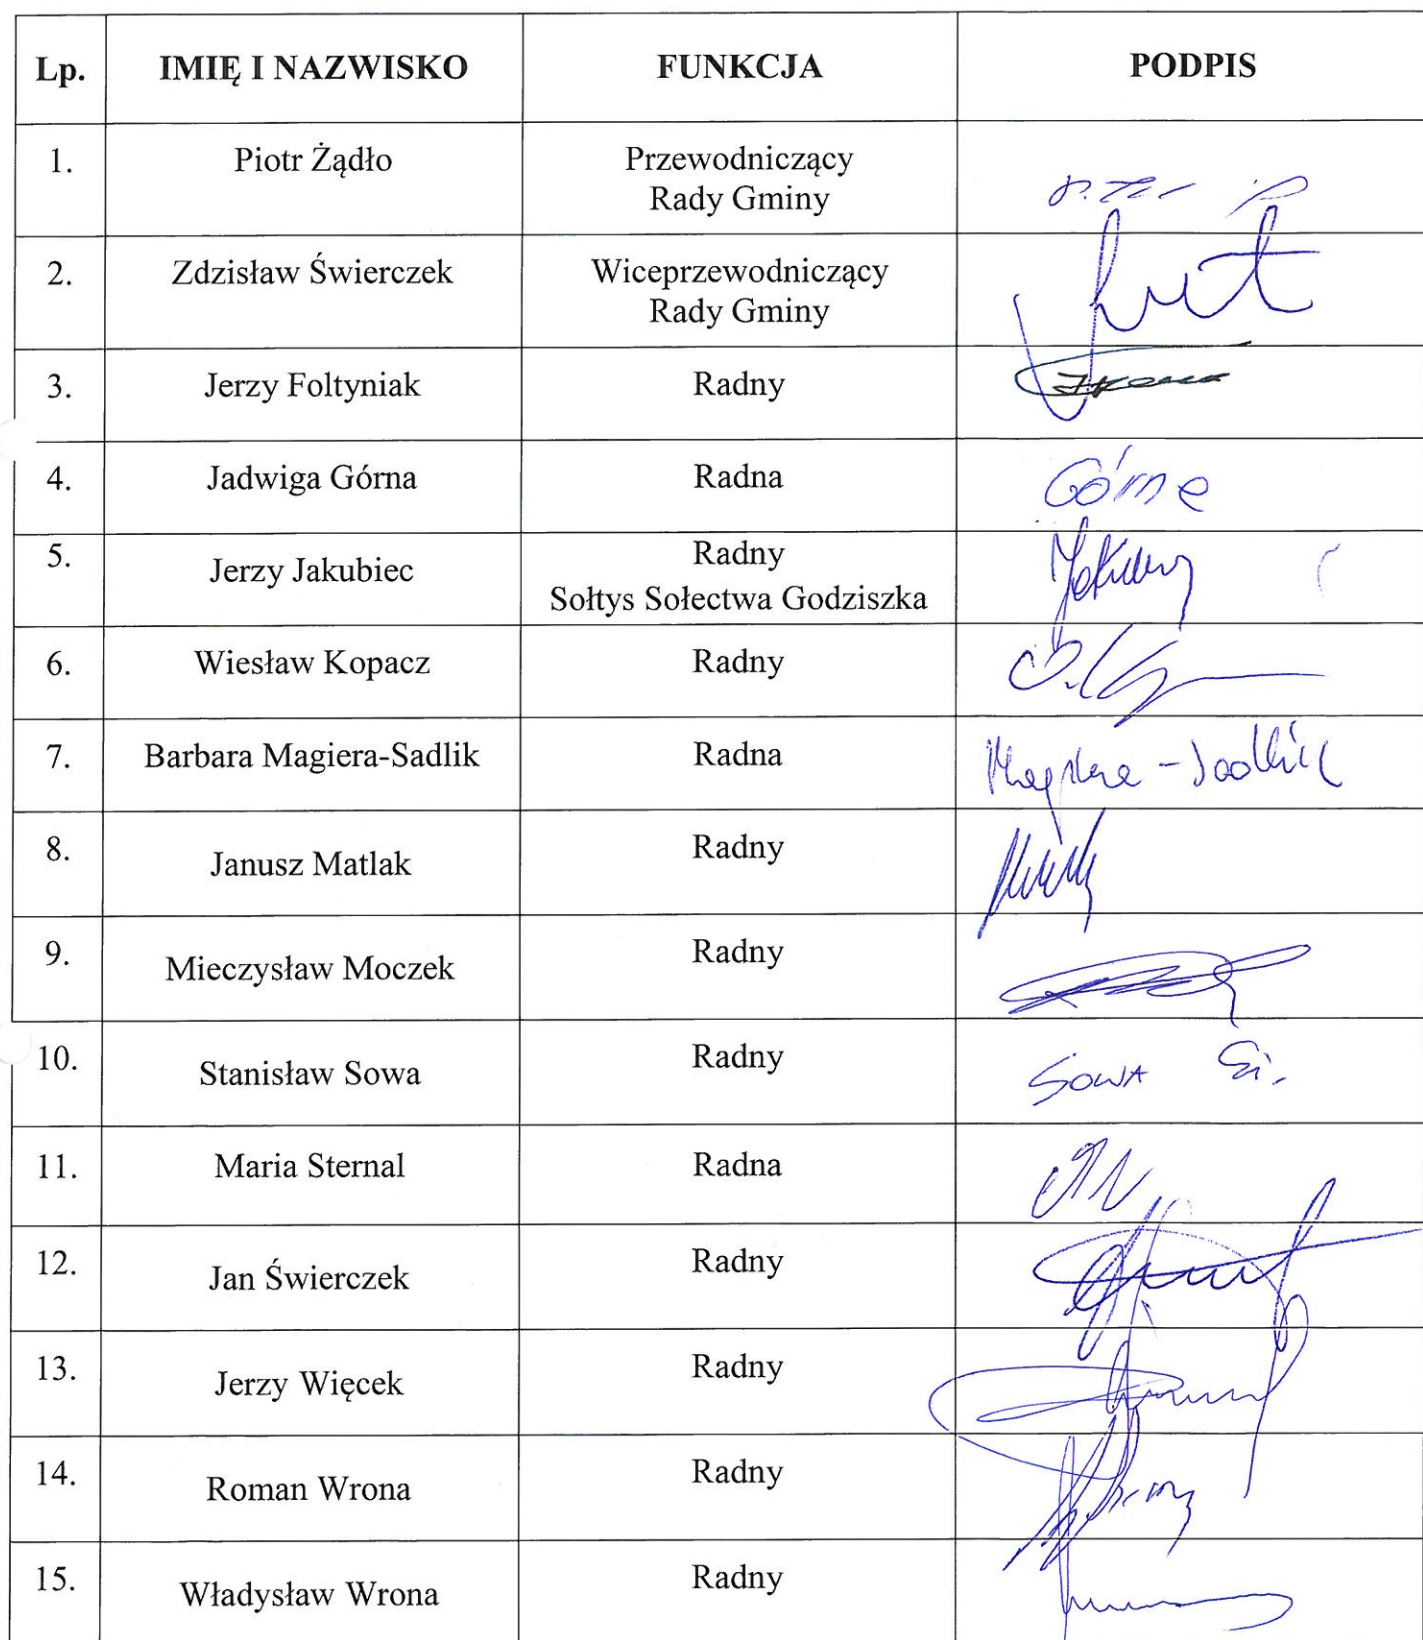 Lp. IMIĘ I NAZWISKO FUNKCJA PODPIS
1. Piotr Żądło Przewodniczący
Rady Gminy
2. Zdzisław Świerczek Wiceprzewodniczący
Rady Gminy
3. Jerzy Foltyniak Radny
4. Jadwiga Górna Radna Górna
5. Jerzy Jakubiec Radny
Sołtys Sołectwa Godziszka
6. Wiesław Kopacz Radny
7. Barbara Magiera-Sadlik Radna Magiera-Sadlik
8. Janusz Matlak Radny
9. Mieczysław Moczek Radny
10. Stanisław Sowa Radny SOWA
11. Maria Sternal Radna
12. Jan Świerczek Radny
13. Jerzy Więcek Radny
14. Roman Wrona Radny
15. Władysław Wrona Radny